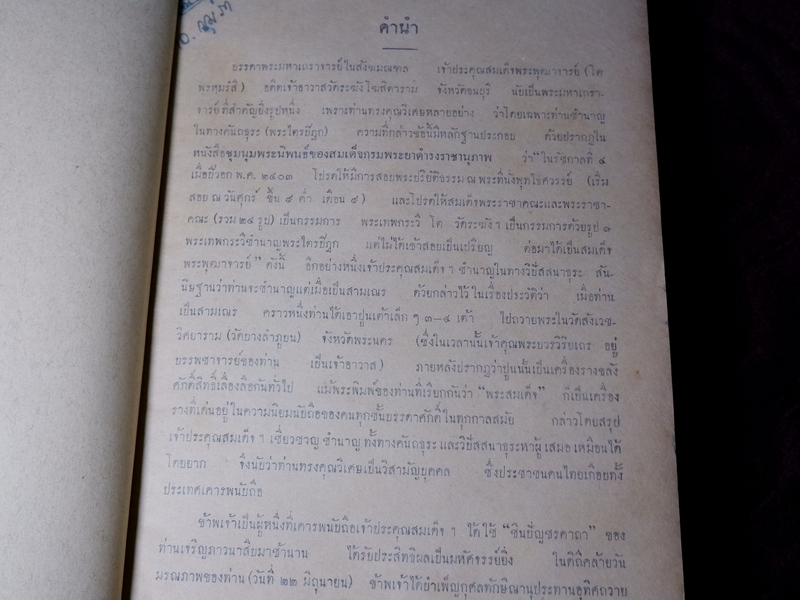 คำนำ
บรรดาพระมหาเถราจารย์ในสังฆมณฑล เจ้าประคุณสมเด็จพระพุฒาจารย์ (โต
พรหมรํสี) อดีตเจ้าอาวาสวัดระฆังโฆสิตาราม จังหวัดธนบุรี นับเป็นพระมหาเถรา-
จารย์ที่สำคัญยิ่งรูปหนึ่ง เพราะท่านทรงคุณวิเศษหลายอย่าง ว่าโดยเฉพาะท่านชำนาญ
ในทางคันถธุระ (พระไตรปิฎก) ความที่กล่าวข้อนี้มีหลักฐานประกอบ ด้วยปรากฏใน
หนังสือชุมนุมพระนิพนธ์ของสมเด็จกรมพระยาดำรงราชานุภาพ ว่า “ในรัชกาลที่ ๔
เมื่อปีวอก พ.ศ. ๒๔๐๓ โปรดให้มีการสอบพระปริยัติธรรม ณ พระที่นั่งพุทไธศวรรย์ (เริ่ม
สอบ ณ วันศุกร์ ขึ้น ๔ ค่ำ เดือน ๙) และโปรดให้สมเด็จพระราชาคณะและพระราชา-
คณะ (รวม ๒๔ รูป) เป็นกรรมการ พระเทพกระวี โต วัดระฆัง ฯ เป็นกรรมการด้วยรูป ๑
พระเทพกระวีชำนาญพระไตรปิฎก แต่ไม่ได้เข้าสอบเป็นเปรียญ ต่อมาได้เป็นสมเด็จ
พระพุฒาจารย์” ดังนี้ อีกอย่างหนึ่งเจ้าประคุณสมเด็จ ฯ ชำนาญในทางวิปัสสนาธุระ สัน-
นิษฐานว่าท่านจะชำนาญแต่เมื่อเป็นสามเณร ด้วยกล่าวไว้ในเรื่องประวัติว่า เมื่อท่าน
เป็นสามเณร คราวหนึ่งท่านได้เอาปูนเต้าเล็ก ๆ ๓–๔ เต้า ไปถวายพระในวัดสังเวช-
วิศยาราม (วัดบางลำภูบน) จังหวัดพระนคร (ซึ่งในเวลานั้นเจ้าคุณพระบวรวิริยเถร อยู่
บรรพชาจารย์ของท่าน เป็นเจ้าอาวาส) ภายหลังปรากฏว่าปูนนั้นเป็นเครื่องรางขลัง
ศักดิ์สิทธิ์เลื่องลือกันทั่วไป แม้พระพิมพ์ของท่านที่เรียกกันว่า “พระสมเด็จ” ก็เป็นเครื่อง
รางที่เด่นอยู่ในความนิยมนับถือของคนทุกชั้นบรรดาศักดิ์ในทุกกาลสมัย กล่าวโดยสรุป
เจ้าประคุณสมเด็จ ฯ เชี่ยวชาญ ชำนาญ ทั้งทางคันถธุระ และวิปัสสนาธุระหาผู้ เสมอ เหมือนได้
โดยยาก จึงนับว่าท่านทรงคุณวิเศษเป็นวิสามัญบุคคล ซึ่งประชาชนคนไทยเกือบทั้ง
ประเทศเคารพนับถือ
ข้าพเจ้าเป็นผู้หนึ่งที่เคารพนับถือเจ้าประคุณสมเด็จ ฯ ได้ใช้ “ชินบัญชรคาถา” ของ
ท่านเจริญภาวนาสืบมาช้านาน ได้รับประสิทธิผลเป็นมหัศจรรย์ยิ่ง ในดิถีคล้ายวัน
มรณภาพของท่าน (วันที่ ๒๒ มิถุนายน) ข้าพเจ้าได้บำเพ็ญกุศลทักษิณานุประทานอุทิศถวาย